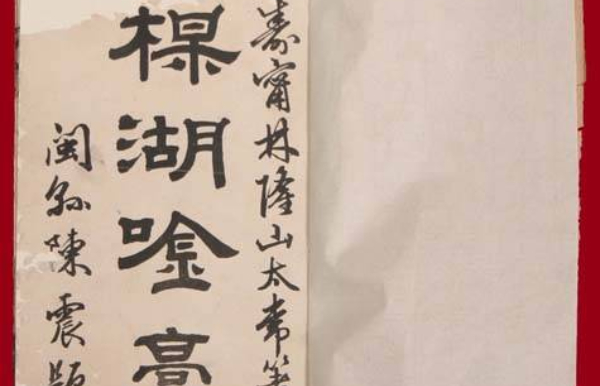 壽甯林隆山太常
楳湖唫
閩縣陳震題